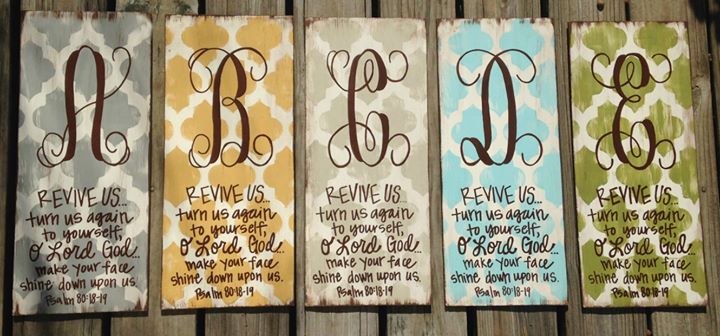 A
REVIVE US...
turn us again
to yourself,
O Lord God...
make your face
shine down upon us.
Psalm 80:18-19
B
REVIVE US...
turn us again
to yourself,
O Lord God...
make your face
shine down upon us.
Psalm 80:18-19
C
REVIVE US...
turn us again
to yourself,
O Lord God...
make your face
shine down upon us.
Psalm 80:18-19
D
REVIVE US...
turn us again
to yourself,
O Lord God...
make your face
shine down upon us.
Psalm 80:18-19
E
REVIVE US...
turn us again
to yourself,
O Lord God...
make your face
shine down upon us.
Psalm 80:18-19